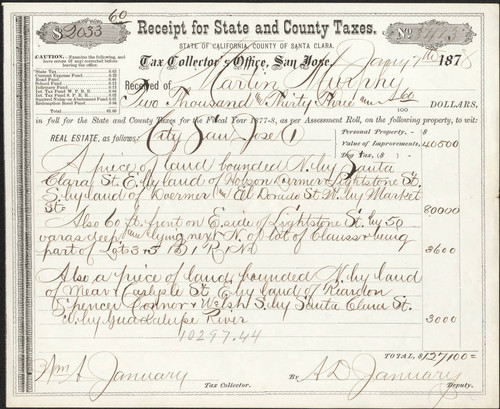 60
$ 2033
Receipt for State and County Taxes.
No.
STATE OF CALIFORNIA, COUNTY OF SANTA CLARA.
Tax Collector's Office, San Jose, Jany 7th 1878
CAUTION.—Examine the following, and have errors (if any) corrected before leaving the office.
State Tax
Current Expense Fund
Road Fund
School Fund
Infirmary Fund
Total
Received of Martin Murphy
Two Thousand Thirty Three 60/100 DOLLARS,
in full for the State and County Taxes for the Fiscal Year 1877-8, as per Assessment Roll, on the following property, to wit:
Personal Property, $
REAL ESTATE, as follows: City San Jose (1)
Value of Improvements, 40500
Dog Tax, ($ )
A piece of land bounded N. by Santa
Clara St. E. by land of Hobson Doerner Lightstone St.
S. by land of Doerner El Dorado St. W. by Market
St. 80000
Also 60 ft. front on E. side of Lightstone St. by 50
varas deep lying next N. of lot of
part of Lots 3 5 B 1 R 1 N 3600
Also a piece of land bounded N. by land
of Carlisle St. E. by land of Reardon
Spencer Connor & Welsh S. by Santa Clara St.
W. by Guadalupe River 3000
10297.44
TOTAL, $127100
Wm A January
Tax Collector.
By A D January
Deputy.